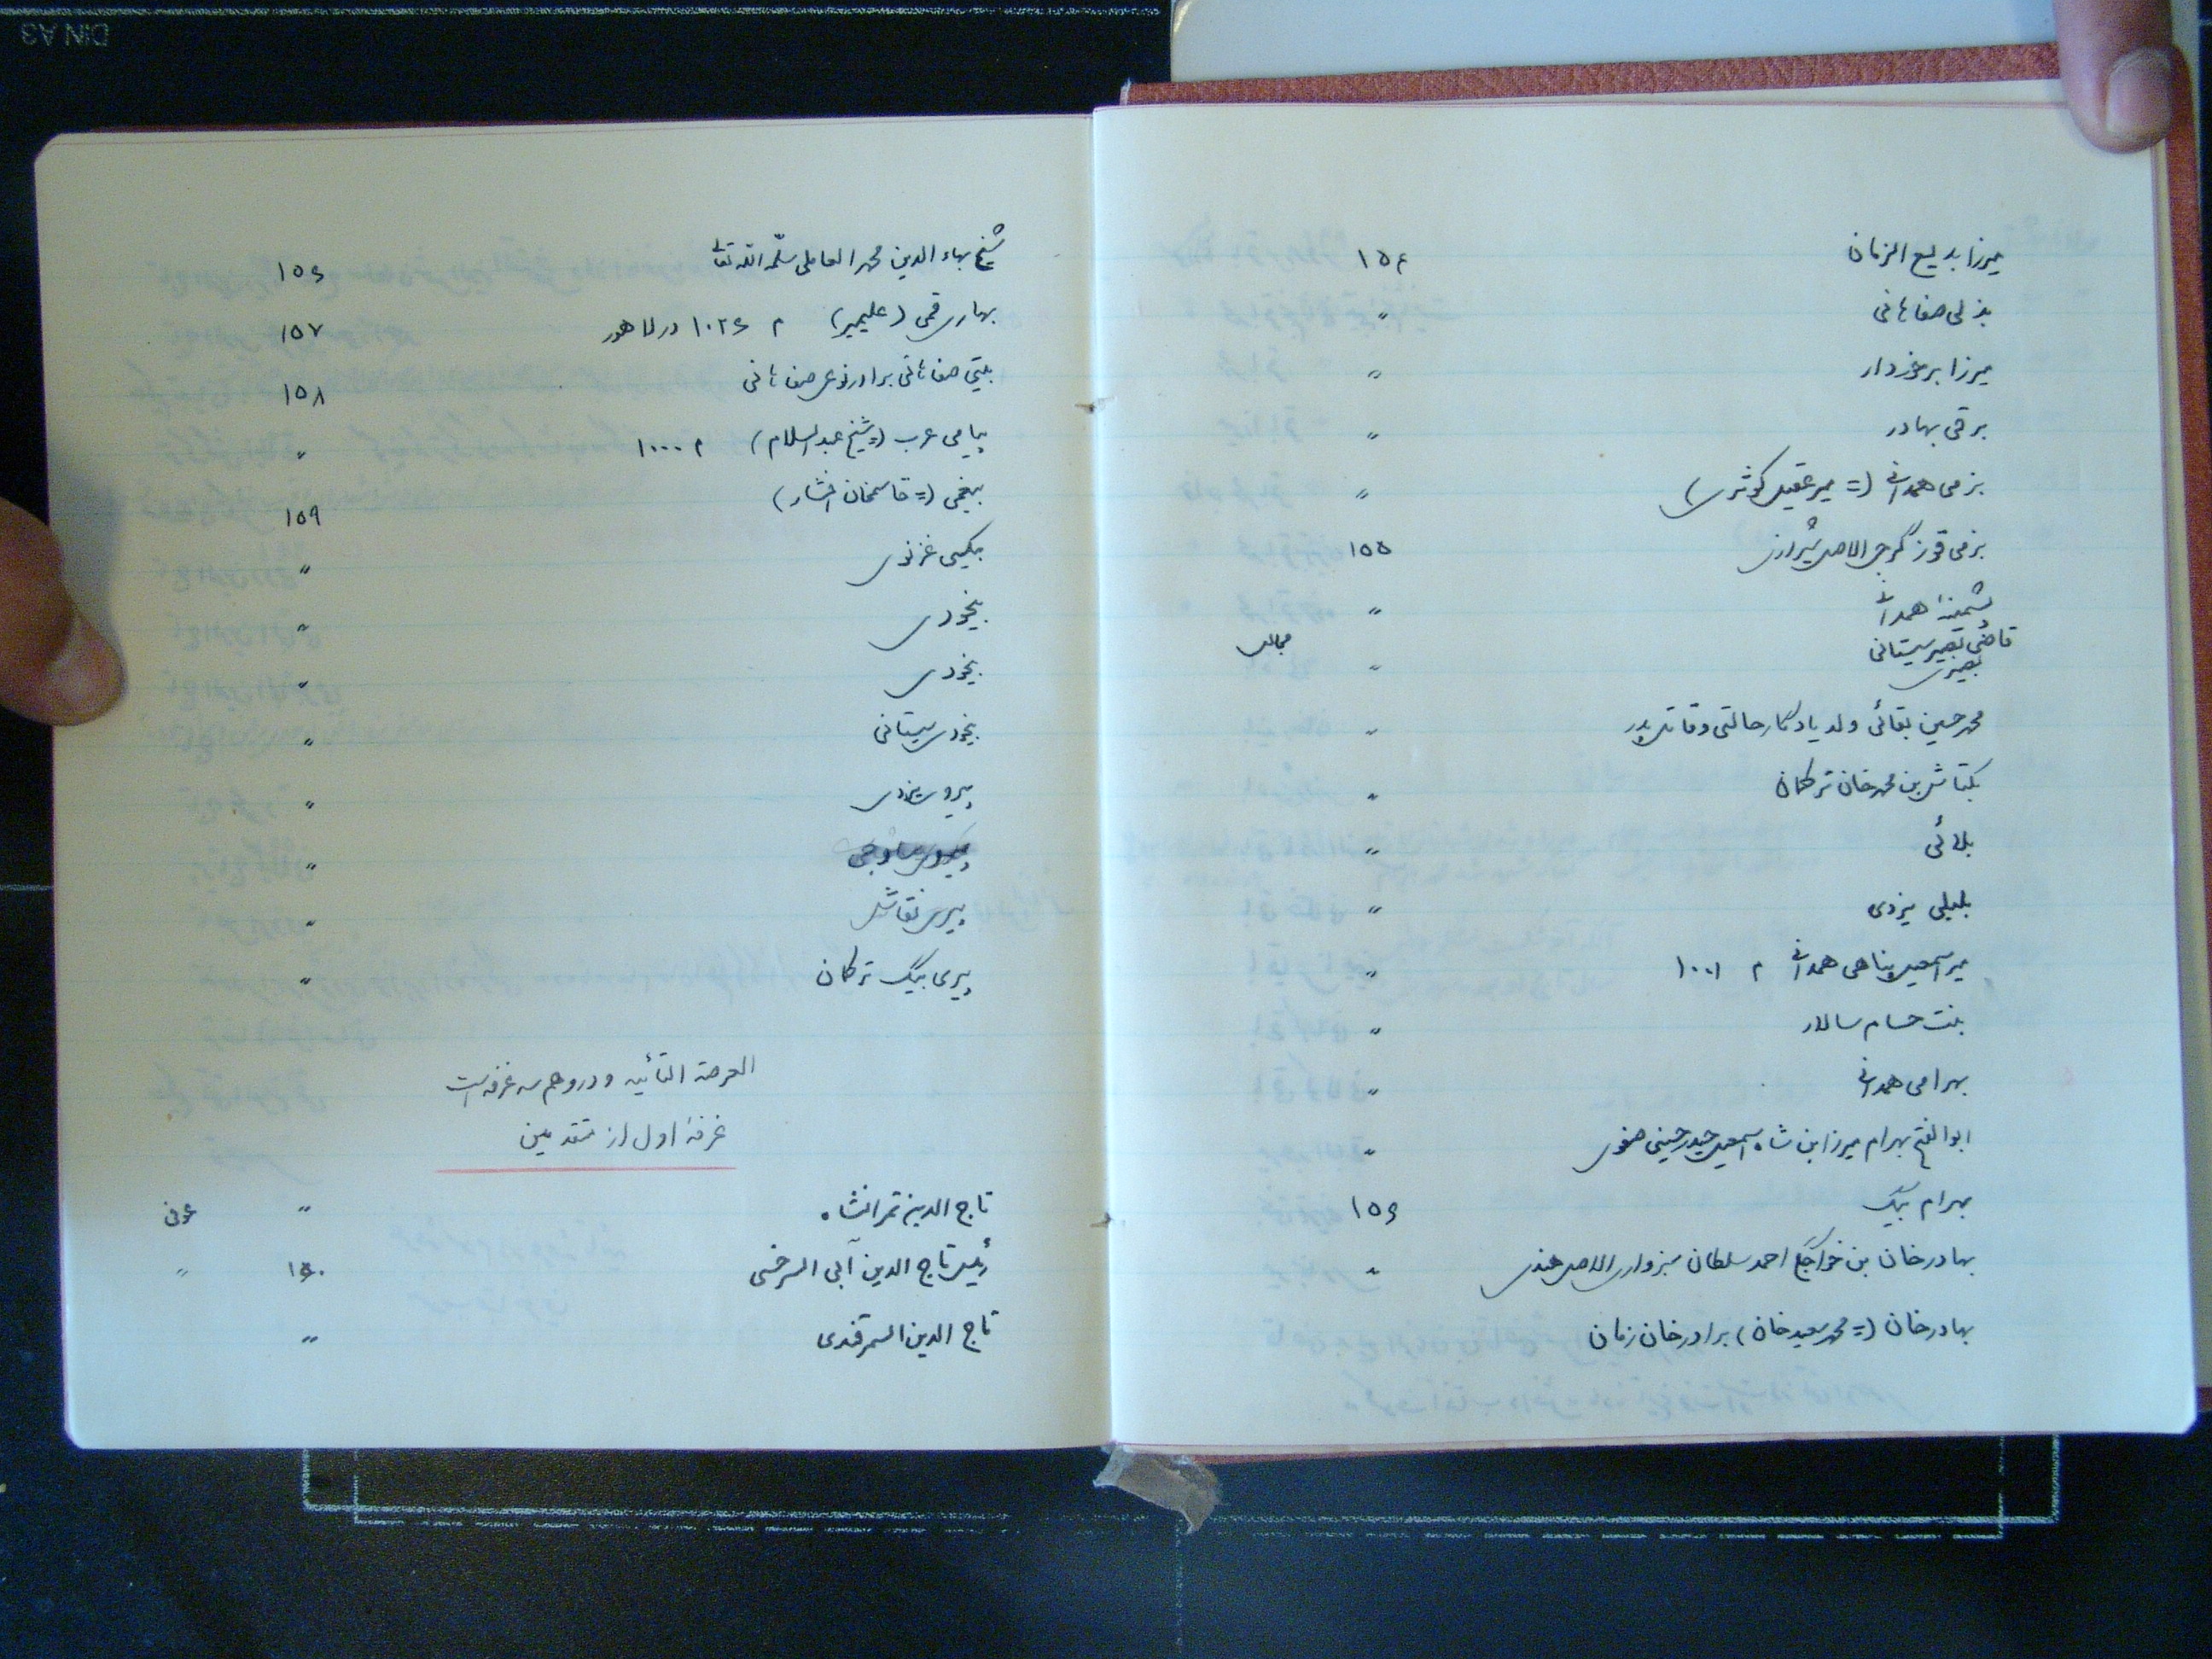 میرزا بدیع الزمان ۱۵۴
بذلی صفاهانی "
میرزا برخوردار "
برقی بهادر "
بزمی همدانی (= میر عقیل کوثری) "
بزمی قوزگرجی الاصل شیرازی ۱۵۵
پشمینهٔ همدانی "
قاضی بصیر سیستانی " مجالس
بصیری
محمد حسین بقائی ولد یادگار حالتی وقاتل پدر "
بکتاش بن محمد خان ترکمان "
بلائی "
بلبلی یزدی "
میر اسمعیل پناهی همدانی م ۱۰۰۱ "
بنت حسام سالار "
بهرامی همدانی "
ابوالفتح بهرام میرزا بن شاه اسمعیل حیدر حسینی صفوی "
بهرام بیگ ۱۵۶
بهادر خان بن خواجگی احمد سلطان سبزواری الاصل هندی "
بهادر خان (= محمد سعید خان) برادر خان زمان
شیخ بهاء الدین محمد العاملی سلّمه الله تعالی ۱۵۶
بهاری قمی (علیمیر) م ۱۰۲۶ در لاهور ۱۵۷
صفاهانی برادر صفاهانی ۱۵۸
پیامی عرب (= شیخ عبدالسلام) م ۱۰۰۰ "
بیغمی (= قاسمخان افشار) ۱۵۹
بیکسی غزنوی "
بیخودی "
بیخودی "
بیخودی سیستانی "
پیروی "
پیروی ساوجی "
پیری نقاش "
پیری بیگ ترکمان "
العرصة التائیه و درو هم سه غرفه است
غرفهٔ اول از متقدمین
تاج الدین تمرانشاه " عوفی
رئیس تاج الدین آبی السرخسی ۱۶۰ "
تاج الدین السمرقندی "